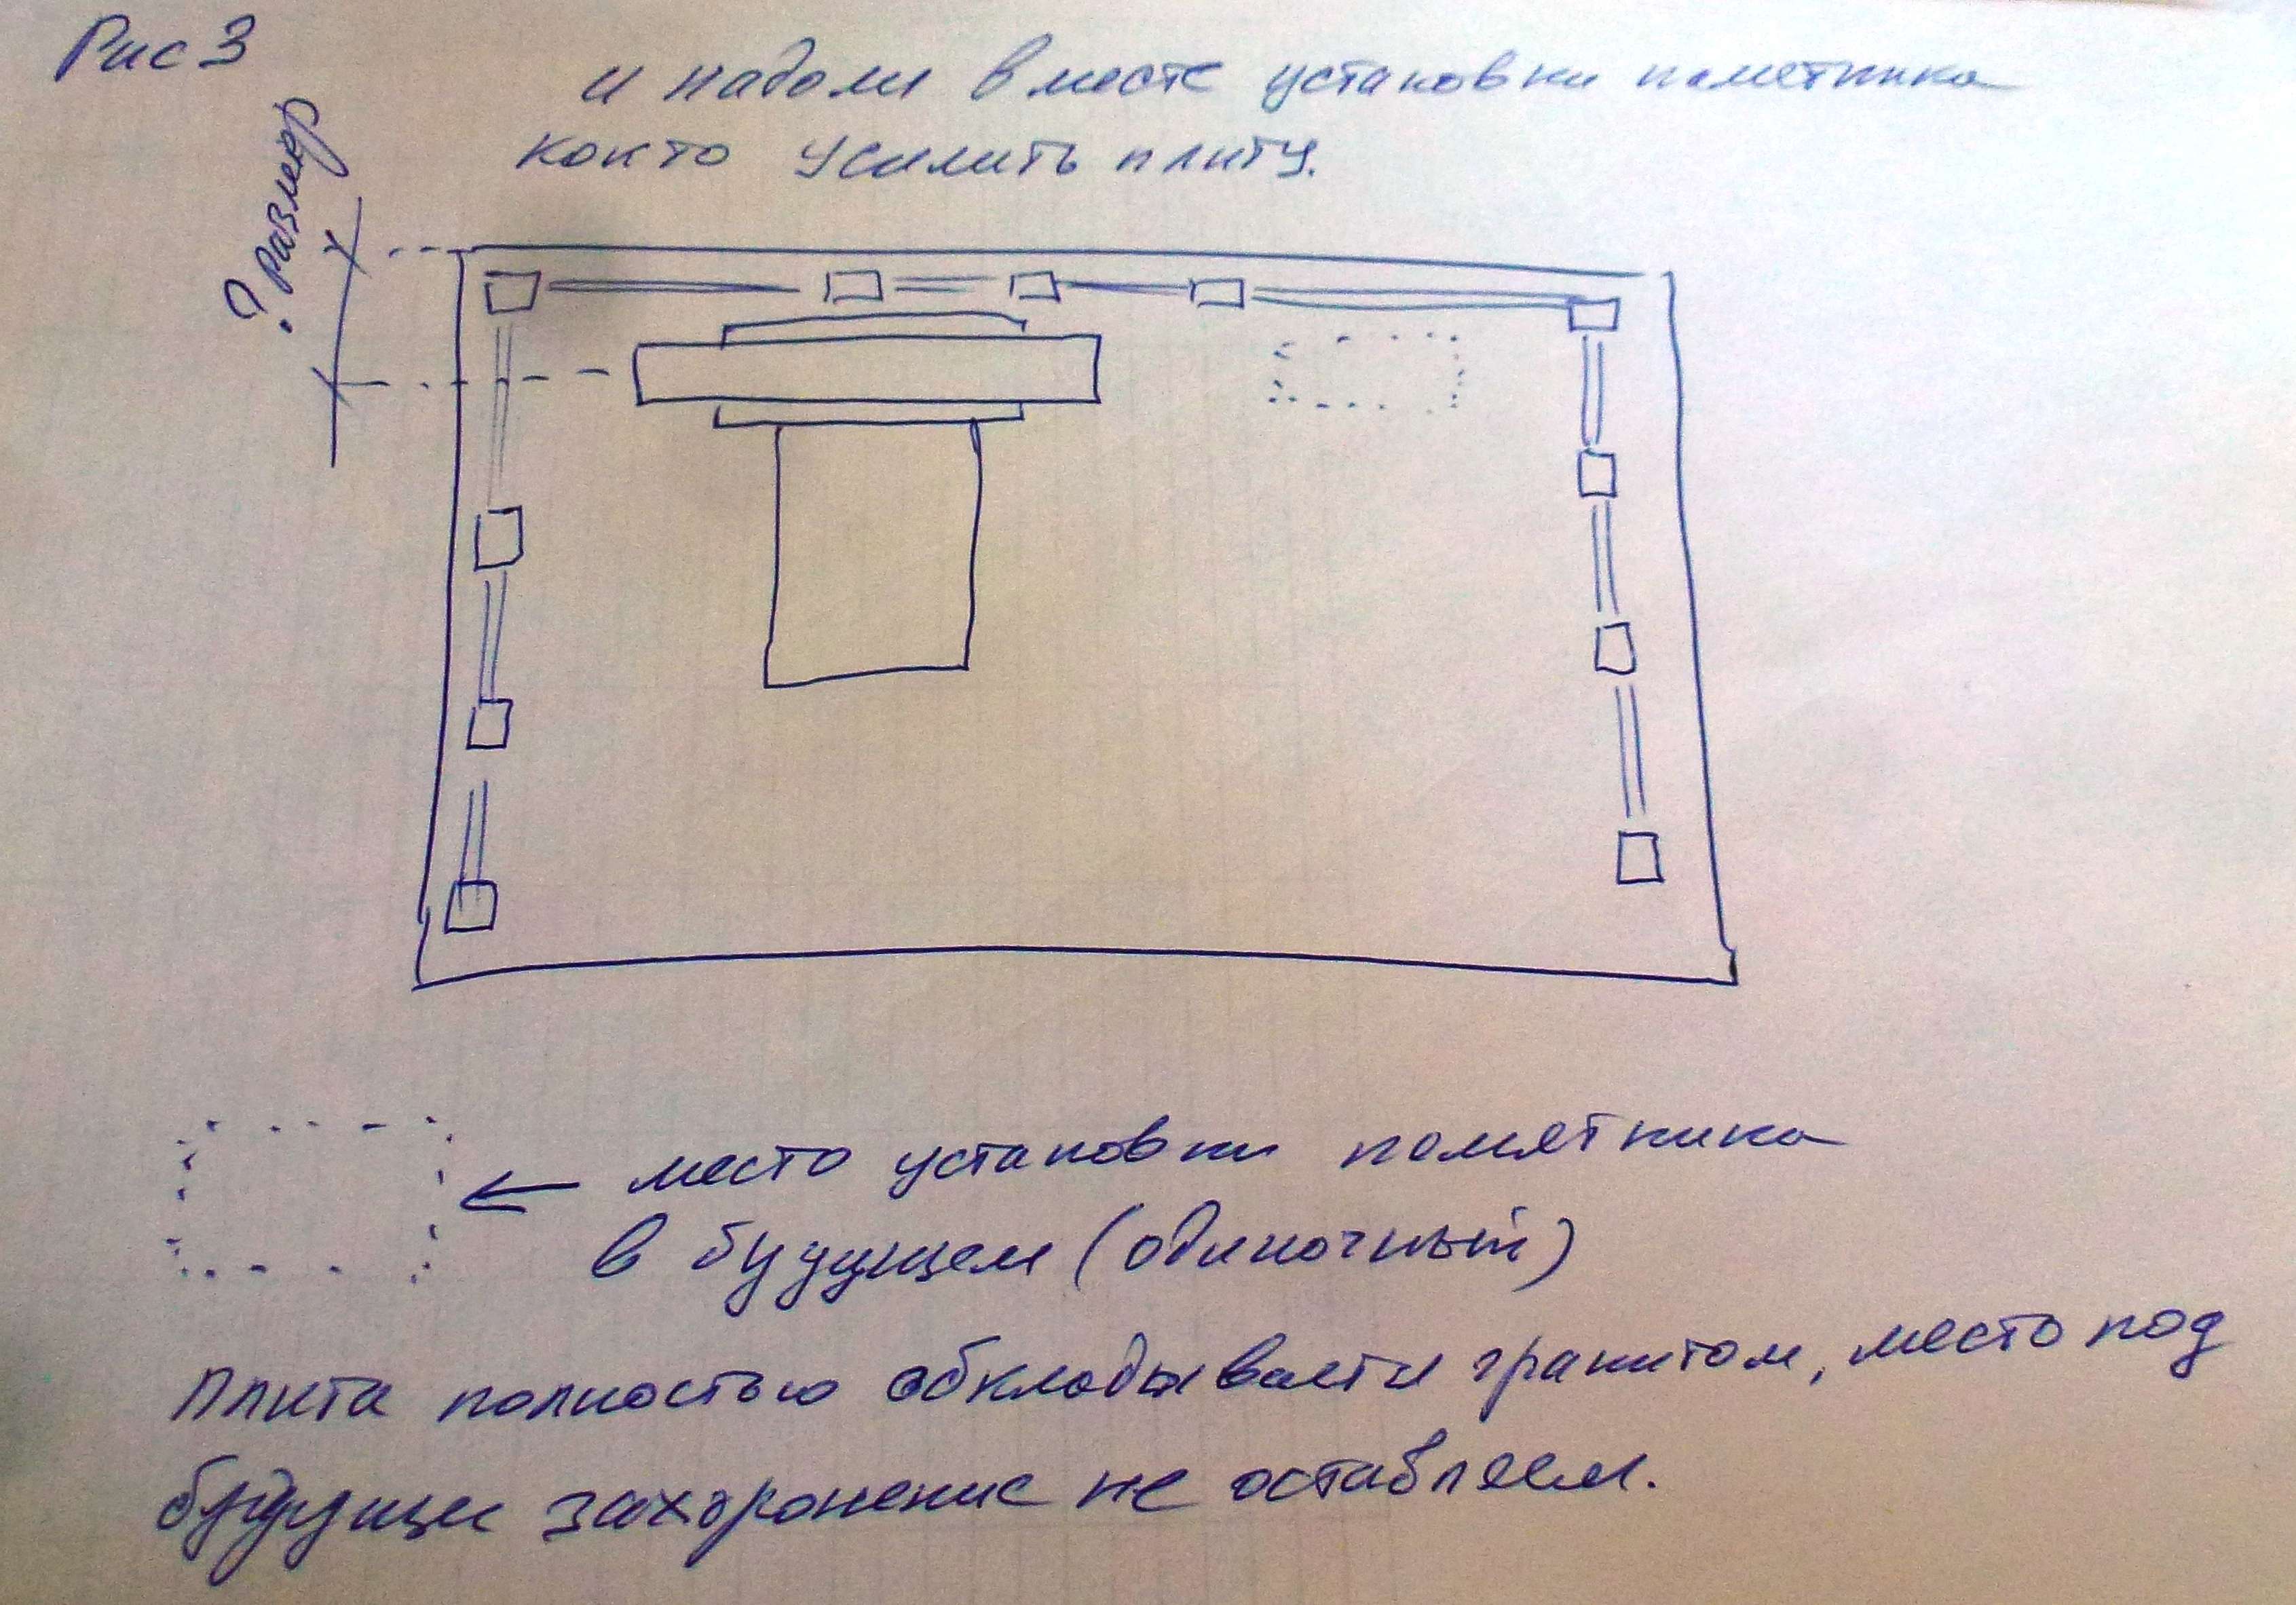 Рис 3
и надоли в месте установки паметника
как то усилить плиту.
? размер
место установки паметника
в будущем (одиночный)
Плита полностью обкладывается гранитом, место под
будущи захоронение не оставляем.